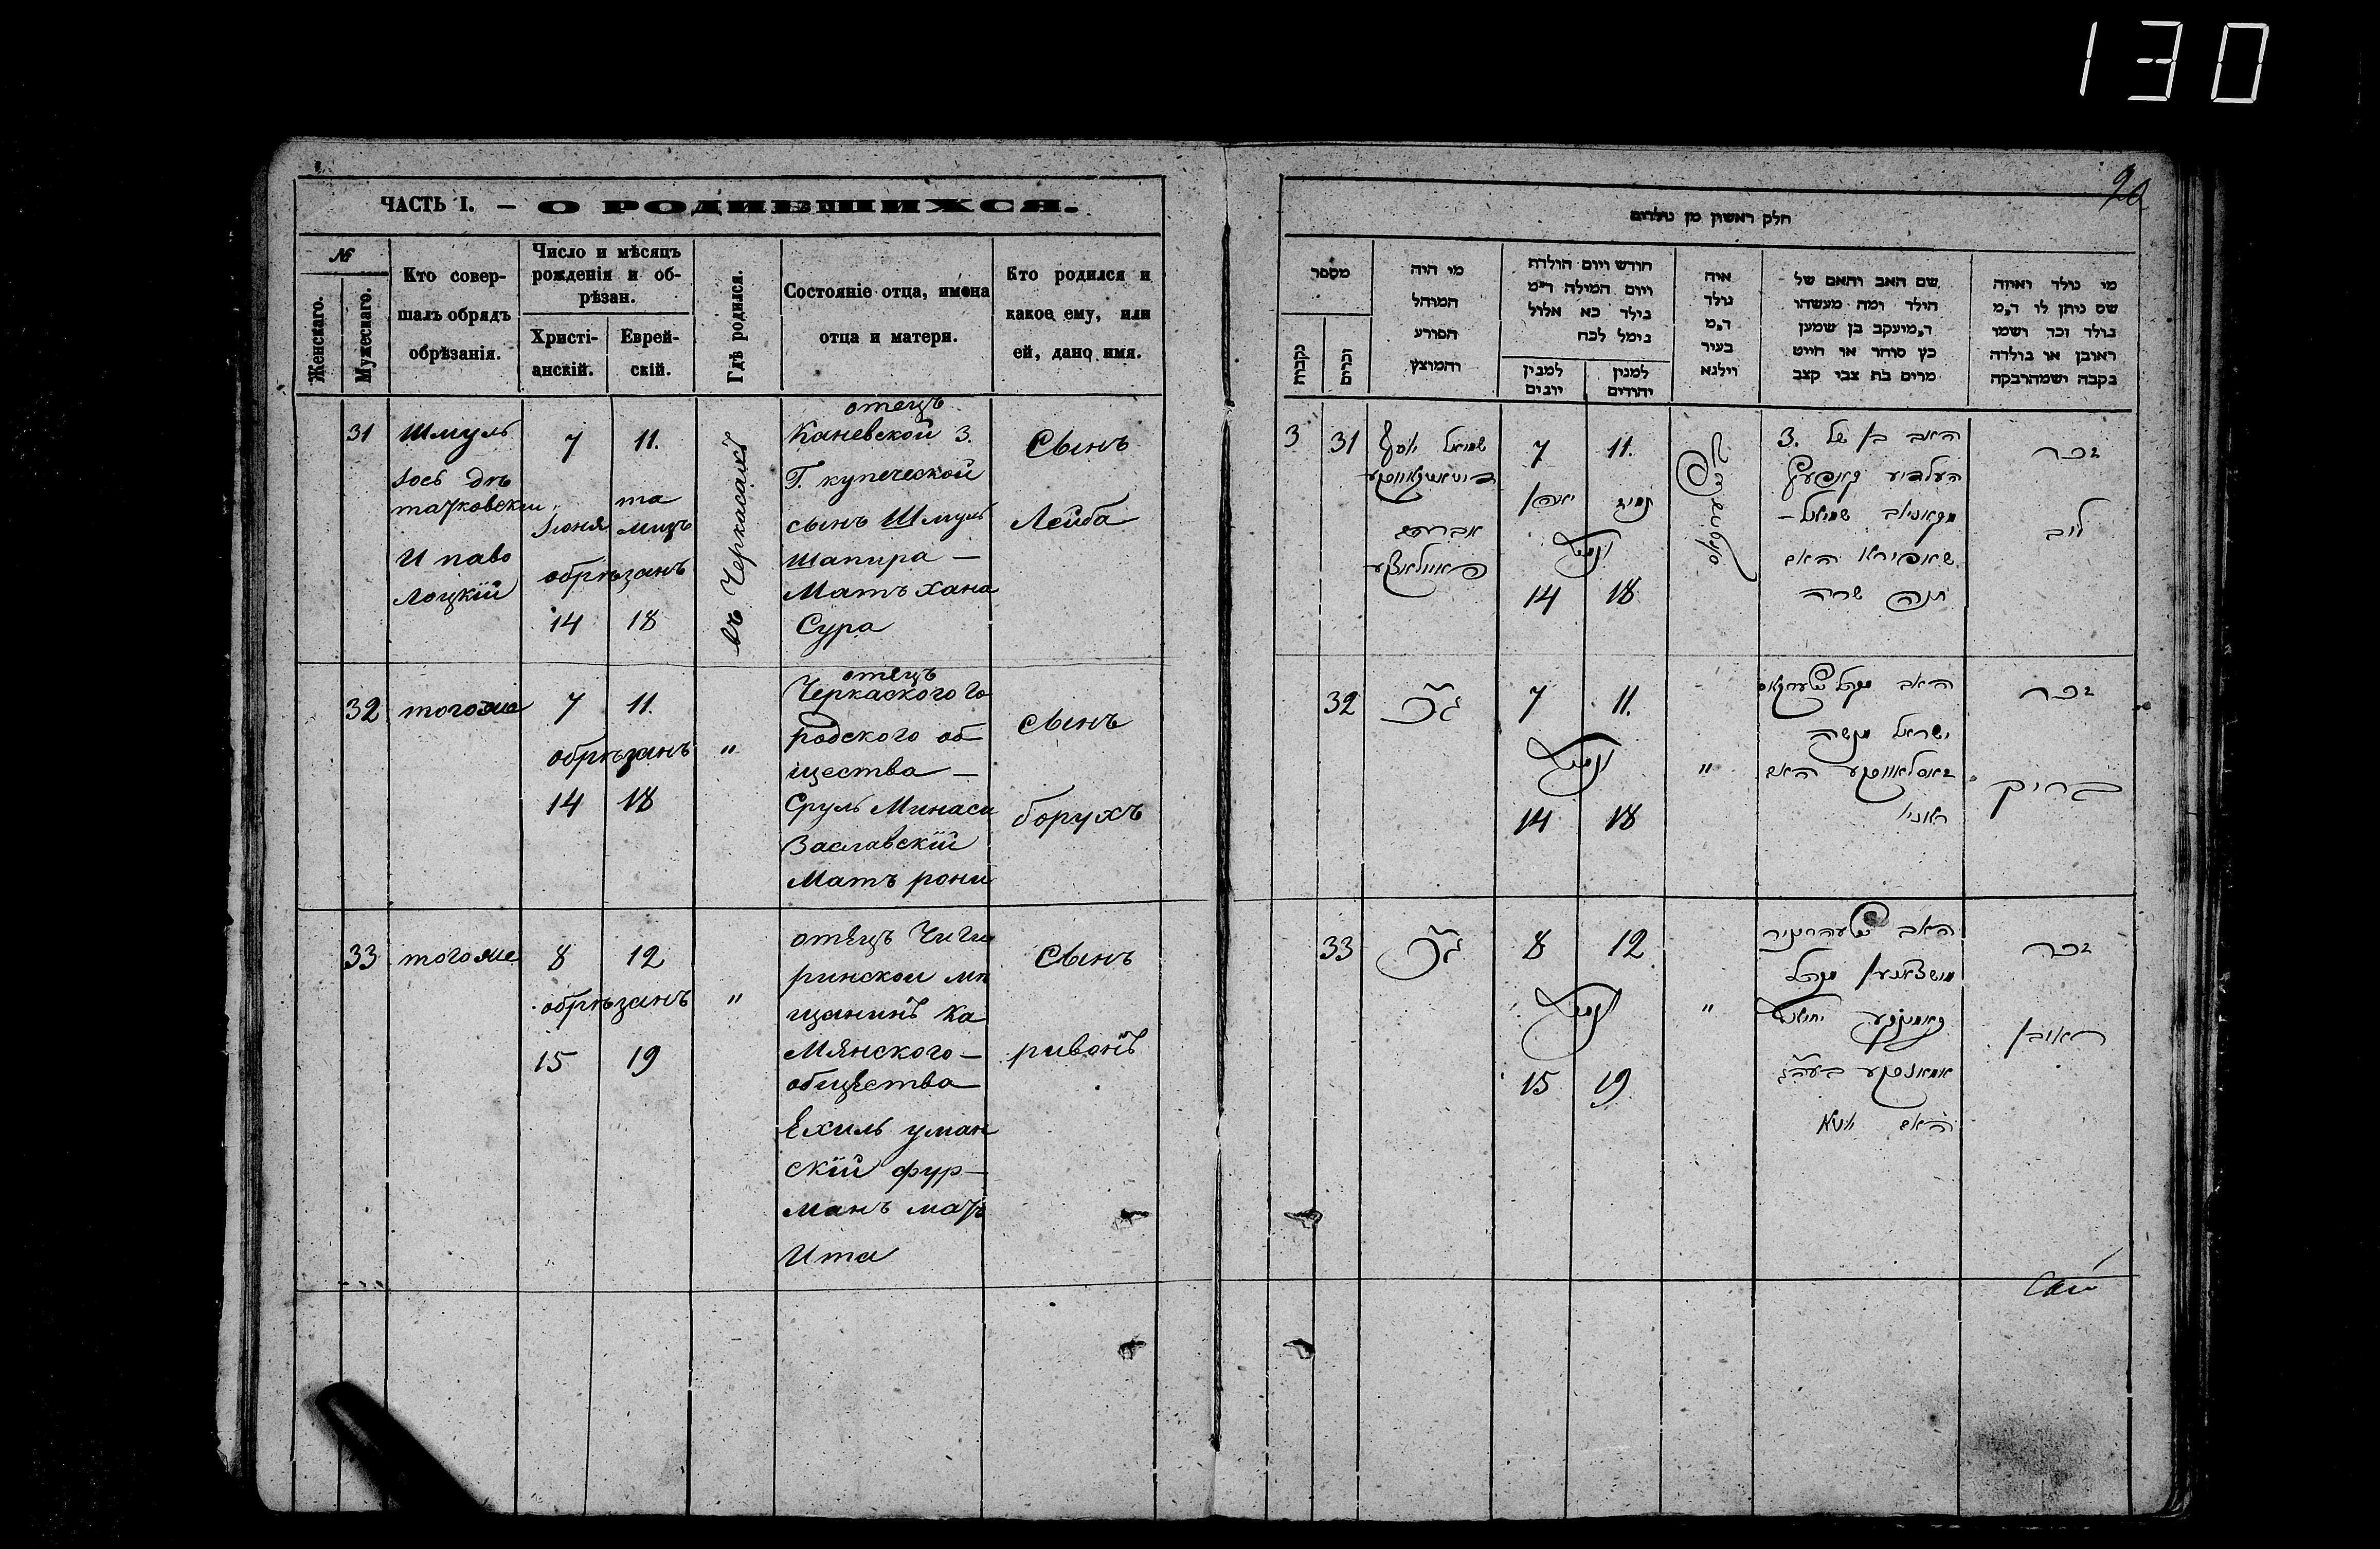 130
ЧАСТЬ I. — О РОДИВШИХСЯ.
№
Женскаго.
Мужескаго.
Кто совер-
шалъ обрядъ
обрѣзанія.
Число и мѣсяцъ
рожденія и об-
рѣзан.
Христі-
анскій.
Еврей-
скій.
Гдѣ родился.
Состояніе отца, имена
отца и матери.
Кто родился и
какое ему, или
ей, дано имя.
31
Шмуль
Іось
И паво
лоцкій
7
Іюня
11.
та
мизъ
обрѣзанъ
14 18
въ Черкасахъ
отецъ
Каневской 3.
Г. купеческой
сынъ Шмуль
Шапира —
Мать Хана
Сура
Сынъ
Лейба
32
тогоже
7 11.
обрѣзанъ
14 18
"
отецъ
Черкаского го
родского об
щества —
Сруль Минаси
Заславскій
Мать рони
сынъ
борухъ
33
тогоже
8 12
обрѣзанъ
15 19
"
отецъ Чиги
ринской мѣ
щанинъ Ка
мянского —
общества
Ехиль уман
скій фур—
манъ мать
Ита
Сынъ
ривонъ
90
חלק ראשון מן נולדים
מספר
נקבות
זכרים
מי היה
המוהל
הפורע
והמוצץ
חודש ויום הולדה
ויום המילה ד״מ
נולד כא אלול
נימל לכח
למנין
יונים
למנין
יהודים
איה
נולד
ד״מ
בעיר
ווילנא
שם האב והאם של
הילד ומה מעשהו
ד״מ יעקב בן שמען
כץ סוחר או חייט
מרים בת צבי קצב
מי נולד ואיזה
שם ניתן לו ד״מ
נולד זכר ושמו
ראובן או נולדה
נקבה ושמה רבקה
3 31
שמואל יוסף
7 11.
יוני תמוז
נימול
14 18
האב בן של 3.
שמואל —
שאפירא האם
חנה שרה
זכר
ליב
32
הנ״ל
7 11.
נימול
14 18
"
האב מקהל
ישראל מנשה
זאסלאווסקי האם
זכר
ברוך
33
הנ״ל
8 12
נימול
15 19
"
האב
מקהל
יחיאל
האם איטא
זכר
ראובן